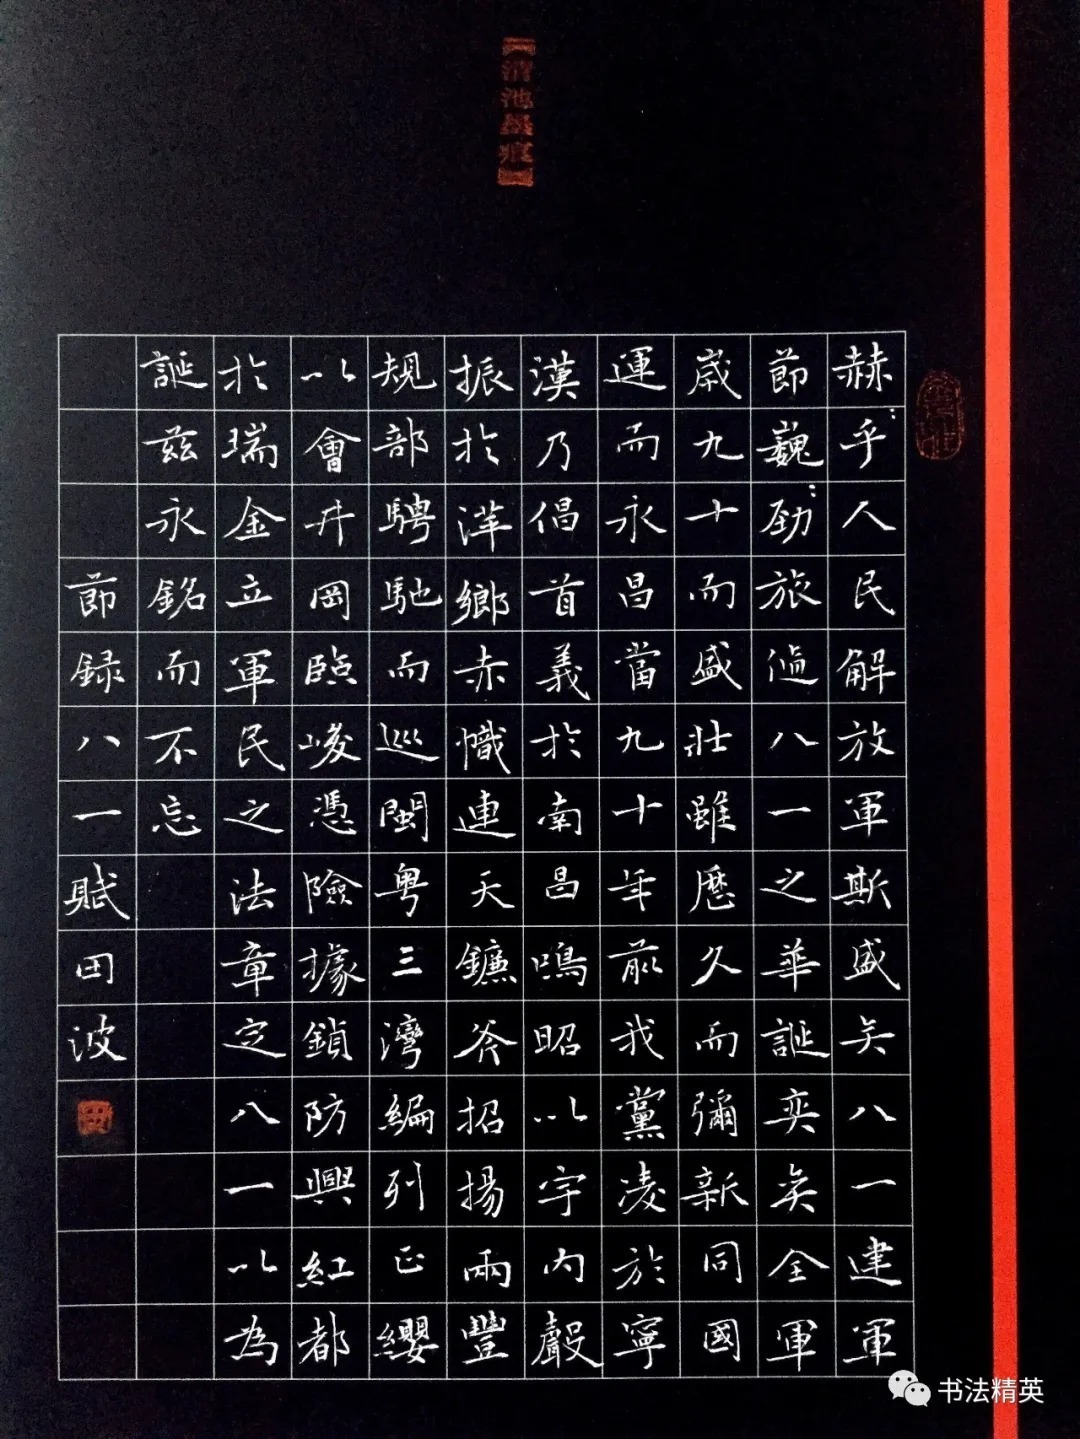 【清池墨痕】
赫:乎人民解放軍斯盛矣八一建軍
節巍:勁旅值八一之華誕奕矣全軍
歲九十而盛壯雖歷久而彌新同國
運而永昌當九十年前我黨凌於寧
漢乃倡首義於南昌鳴昭以宇内聲
振於萍鄉赤幟連天鐮斧招揚兩豐
規部騁馳而巡閩粤三灣編列正纓
以會井岡臨峻憑險據鎖防興紅都
於瑞金立軍民之法章定八一以為
誕兹永銘而不忘
節録八一賦田波
田
书法精英